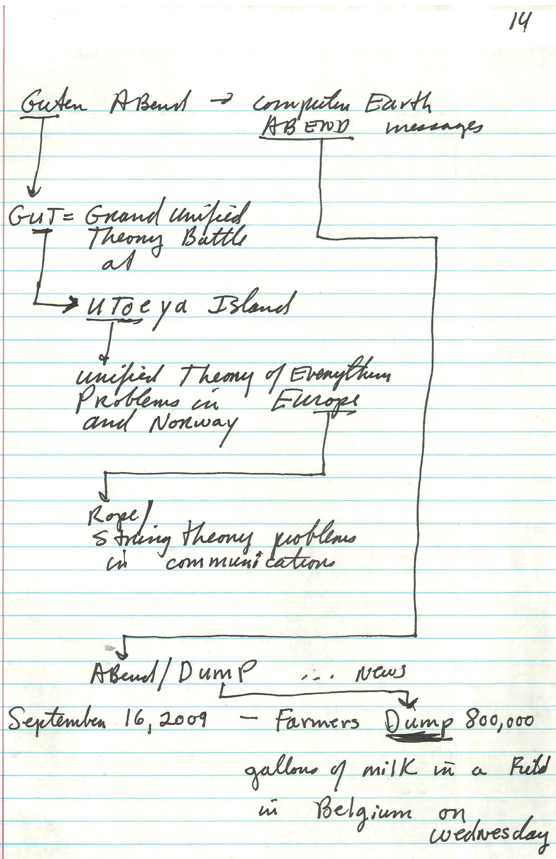 14
Guten ABend → computer Earth
ABEND messages
GUT = Grand Unified
Theory Battle
at
UTOeya Island
Unified Theory of Everything
Problems in Europe
and Norway
Rope/
String theory problems
in communications
ABend/Dump ... News
September 16, 2009 - Farmers Dump 800,000
gallons of milk in a Field
in Belgium on
Wednesday